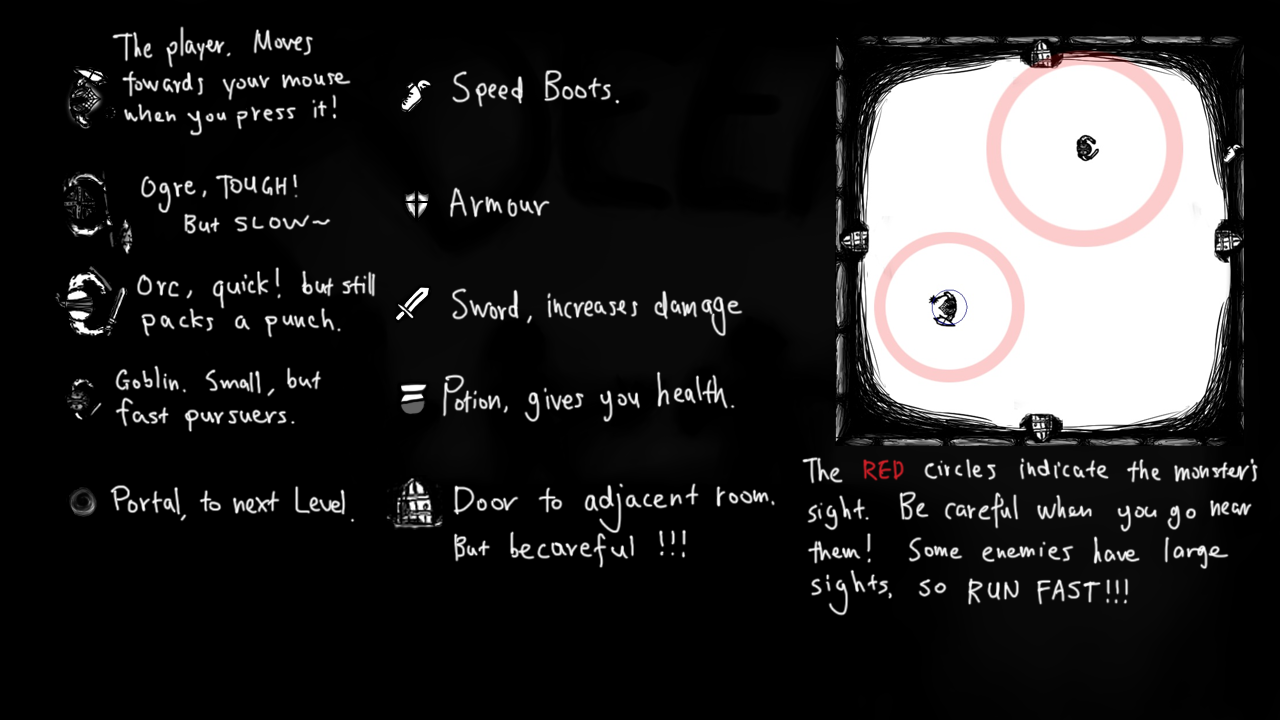 The player. Moves
towards your mouse
when you press it!
Ogre, TOUGH!
But SLOW~
Orc, quick! but still
packs a punch.
Goblin. Small, but
fast pursuers.
Portal, to next Level.
Speed Boots.
Armour
Sword, increases damage
Potion, gives you health.
Door to adjacent room.
But becareful !!!
The RED circles indicate the monster's
sight. Be careful when you go near
them! Some enemies have large
sights, so RUN FAST!!!